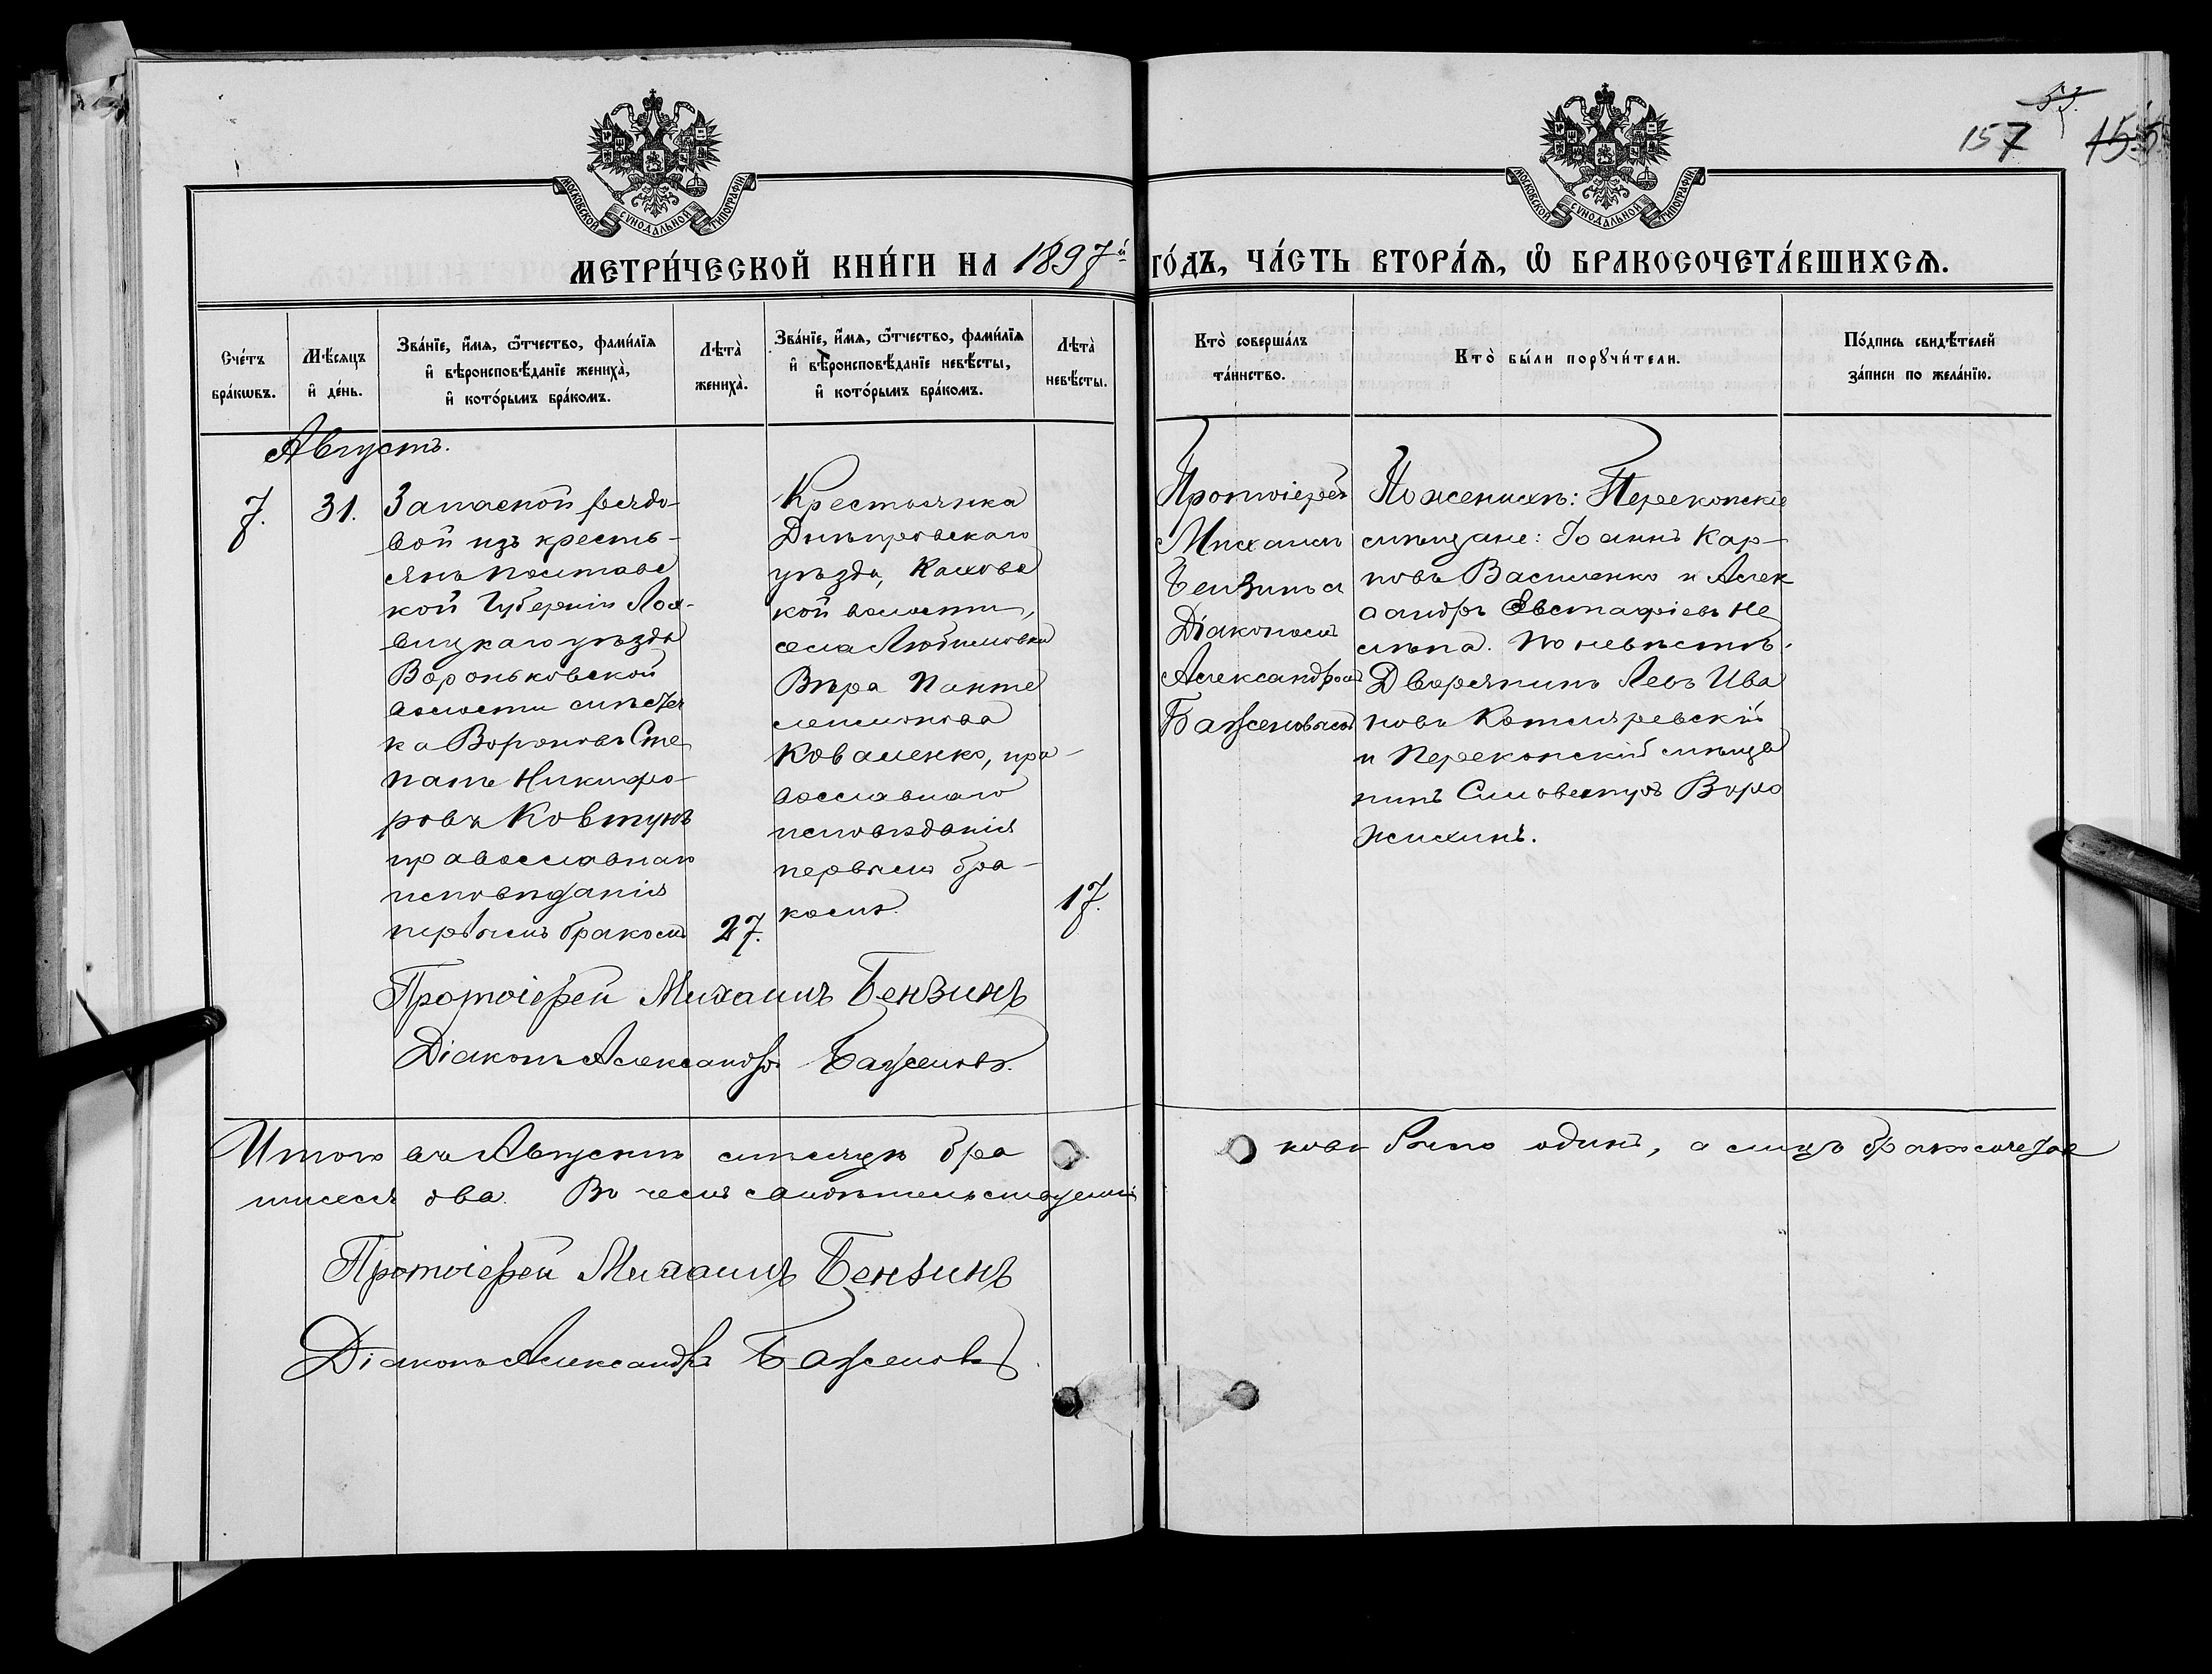 МОСКОВСКОЙ СУНОДАЛЬНОЙ ТИПОГРАФІИ
МОСКОВСКОЙ СУНОДАЛЬНОЙ ТИПОГРАФІИ
53.
157
МЕТРИ́ЧЕСКОЙ КНИ́ГИ НА 1897й ГО́ДЪ, ЧА́СТЬ ВТОРА́Я, Ѿ БРАКОСОЧЕТА́ВШИХСЯ.
Сче́тъ бра́кѡвъ.
Мѣ́сяцъ и҆ де́нь.
Зва́нїе, и҆́мя, ѻ҆́тчество, фами́лїя и҆ вѣроисповѣ́данїе жениха̀, и҆ кото́рымъ бра́комъ.
Лѣта̀ жениха̀.
Зва́нїе, и҆́мя, ѻ҆́тчество, фами́лїя и҆ вѣроисповѣ́данїе невѣ́сты, и҆ кото́рымъ бра́комъ.
Лѣта̀ невѣ́сты.
Кто̀ соверша́лъ та́инство.
Кто̀ бы́ли порꙋчи́тели.
По́дпись свидѣ́телей за́писи по жела́нїю.
Августъ.
7.
31.
Запасной рядо-
вой изъ кресть-
янъ Полтавс
кой Губерніи Лох-
вицкаго уѣзда
Вороньковской
волости мѣстеч
ка Вороновъ Сте
панъ Никифо-
ровъ Ковтунъ
православнаго
исповѣданія
первымъ бракомъ
27.
Крестьянка
Днѣпровскаго
уѣзда, Каховс
кой волости,
села Любимовки
Вѣра Панте
леимонова
Коваленко, пра-
вославнаго
исповѣданія
первымъ бра-
комъ.
17.
Протоіерей
Михаилъ
Бензинъ съ
Діакономъ
Александромъ
Баженовымъ
По женихѣ: Перекопскіе
мѣщане: Іоаннъ Кар-
повъ Василенко и Алек
сандръ Евстафіевъ Не
мѣпа. По невѣстѣ:
Дворянинъ Левъ Ива
новъ Котляревскій
и Перекопскій мѣща
нинъ Сильвестръ Воро
жихинъ.
Протоіерей Михаилъ Бензинъ
Діаконъ Александръ Баженовъ.
Итого въ Августѣ мѣсяцѣ бра
ковъ было одинъ, а лицъ бракосочетав
шихся два. Въ чемъ свидѣтельствуемъ
Протоіерей Михаилъ Бензинъ
Діаконъ Александръ Баженовъ.